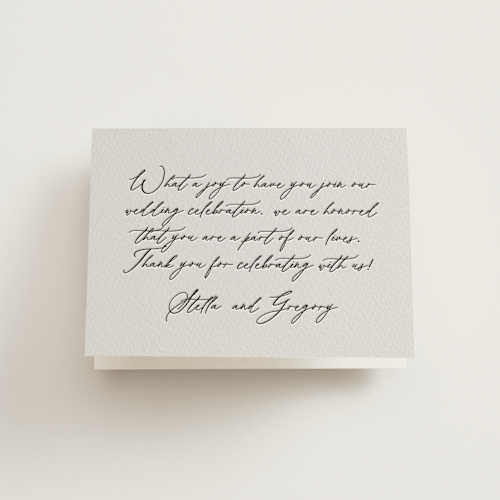 What a joy to have you join our
wedding celebration. we are honored
that you are a part of our lives.
Thank you for celebrating with us!
Stella and Gregory